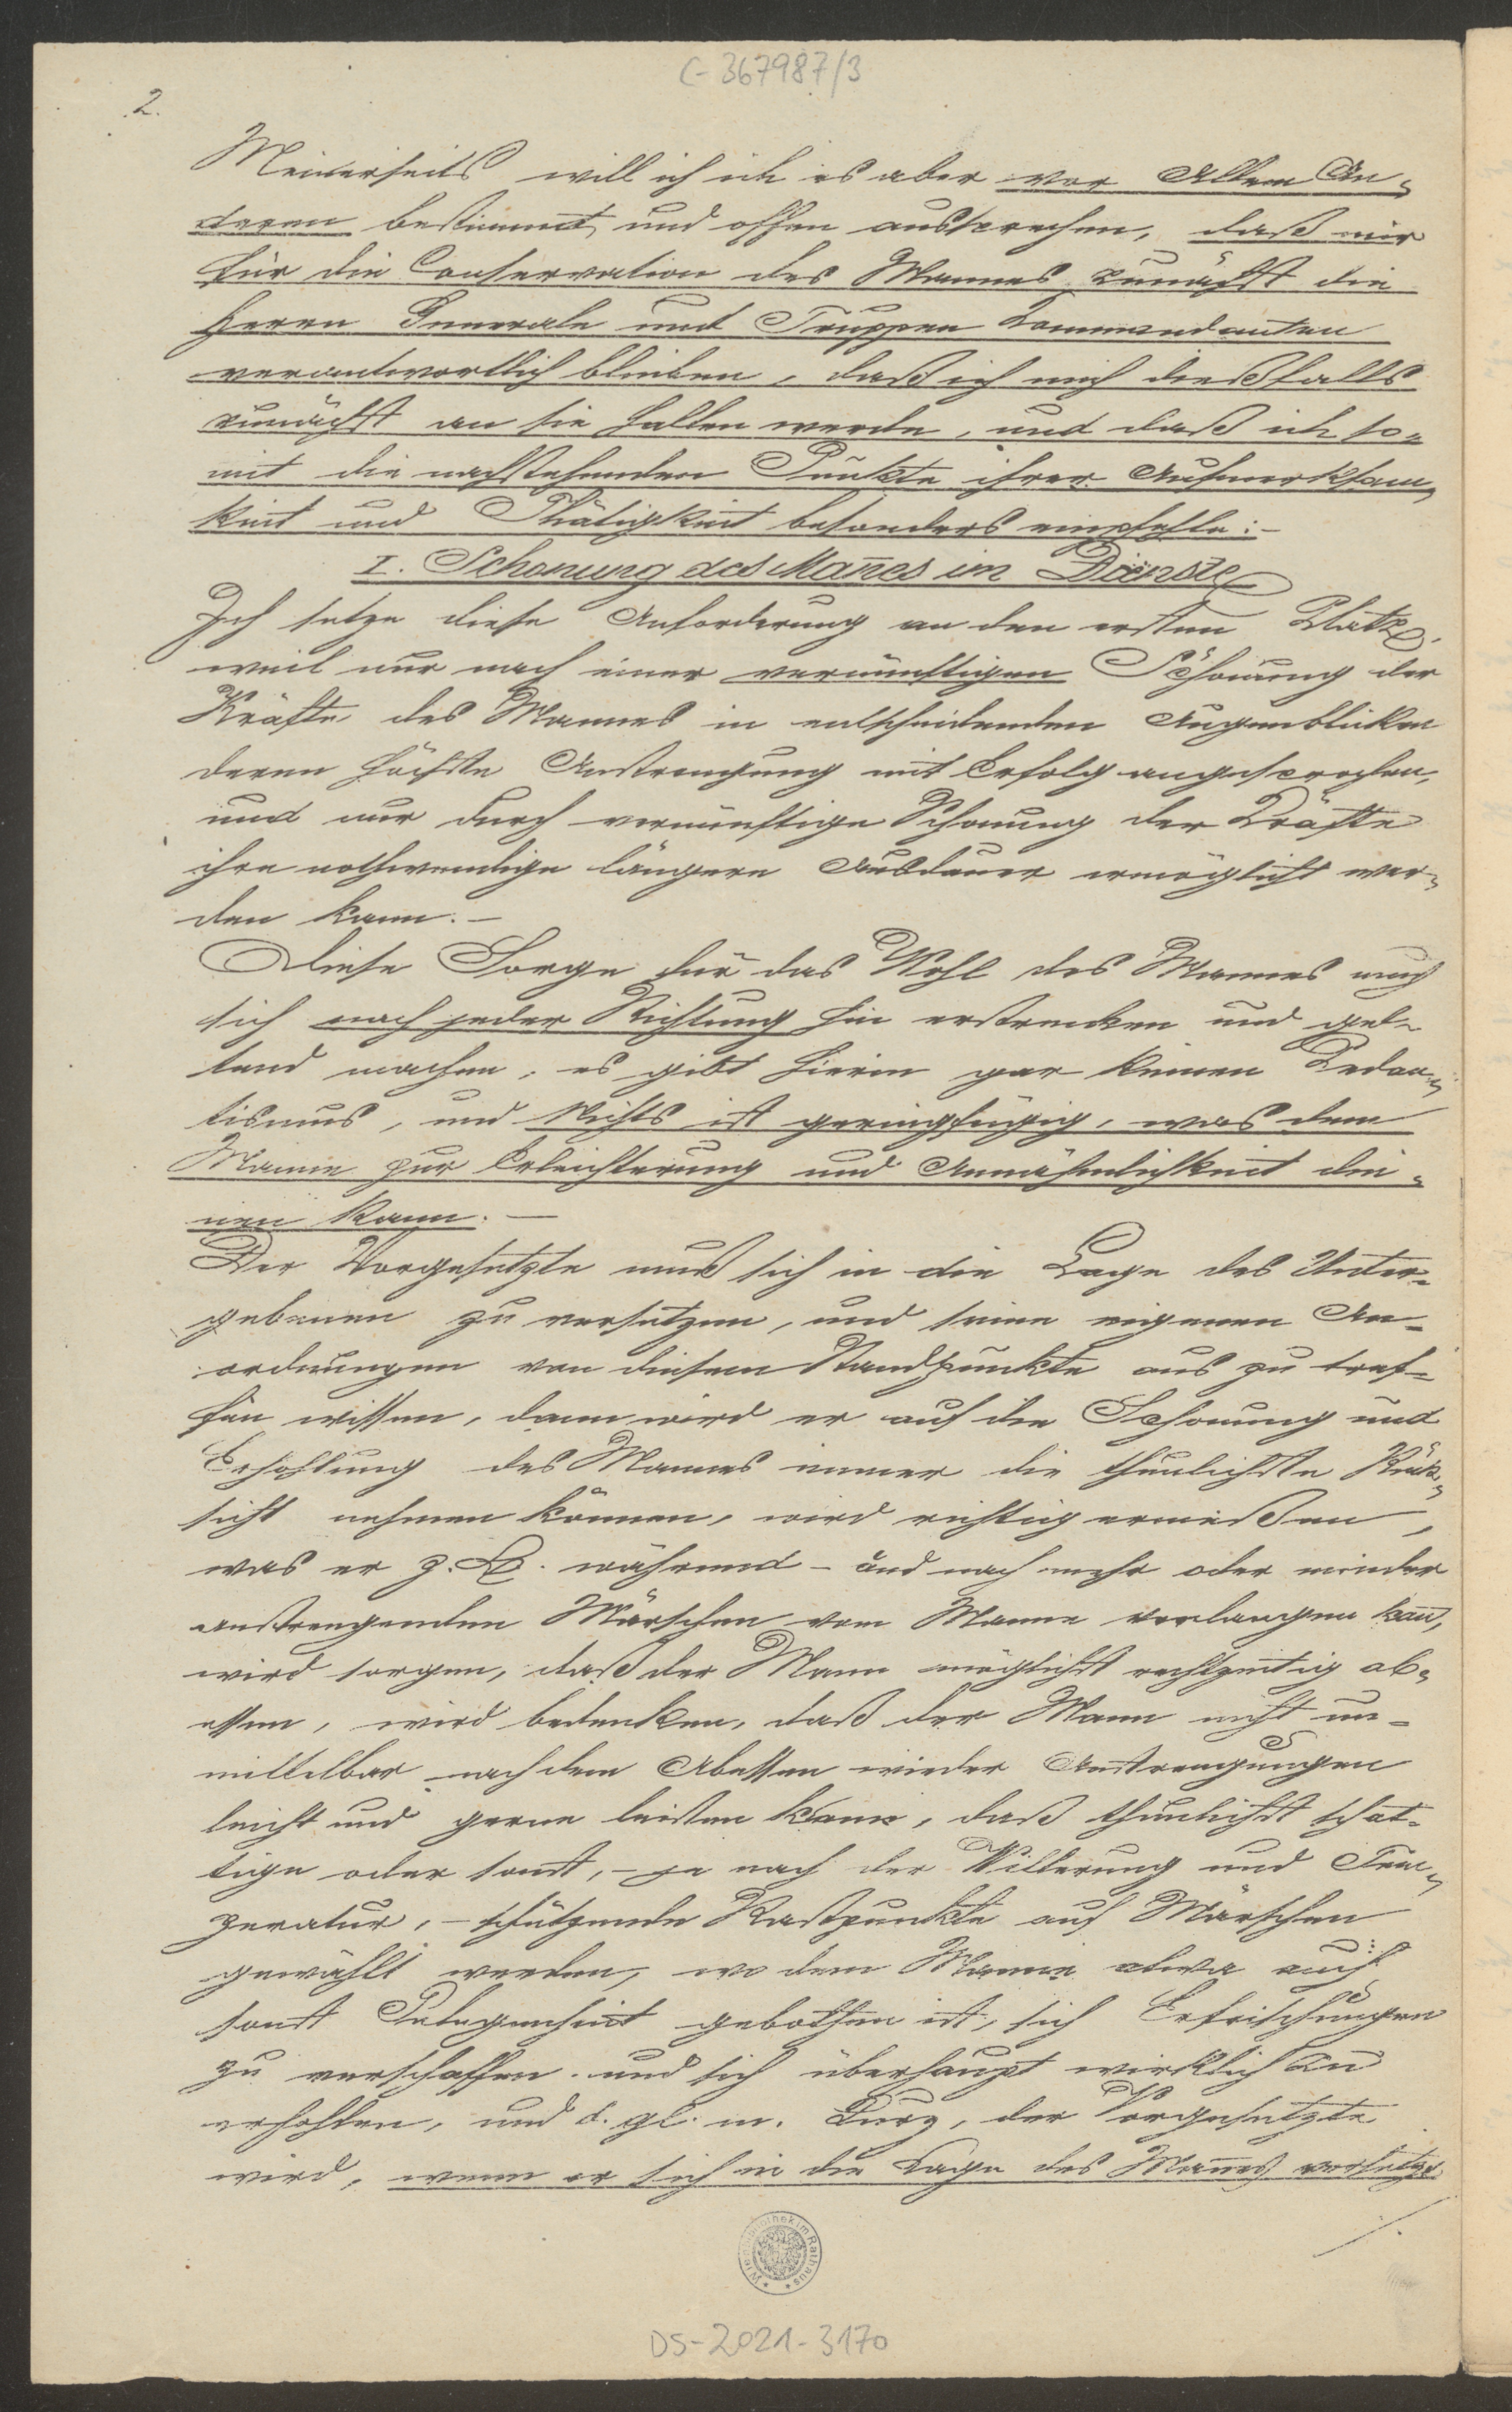 C-367987/3
2.
Meinerseits will ich es aber vor Allem An-
deren bestimmt und offen aussprechen, daß mir
für die Conservation des Mannes zunächst die
Herrn Generale und Truppen Commandanten
verantwortlich bleiben, daß ich mich dießfalls
zunächst an sie halten werde, und daß ich so-
mit die nachstehenden Punkte ihrer Aufmerksam-
keit und Thätigkeit besonders empfehle:-
I. Schonung des Mañes im Dienste
Ich setze diese Anforderung an den ersten Platz,
weil nur nach einer vernünftigen Schonung der
Kräfte des Mannes in entscheidenden Augenblicken
deren höchste Anstrengung mit Erfolg angesprochen,
und nur durch vernünftige Schonung der Kräfte
ihre nothwendige längere Ausdauer ermöglicht wer-
den kann.-
Diese Sorge für das Wohl des Mannes muß
sich nach jeder Richtung hin erstrecken und gel-
tend machen, es gibt hierin gar keinen Pedan-
tismus, und Nichts ist geringfügig, was dem
Manne zur Erleichterung und Annehmlichkeit die-
nen kann.-
Der Vorgesetzte muß sich in die Lage des Unter-
gebenen zu versetzen, und seine eigenen An-
ordnungen von diesem Standpunkte aus zu tref-
fen wissen, dann wird er auf die Schonung und
Erhohlung des Mannes immer die thunlichste Rück-
sicht nehmen können, wird richtig ermeßen,
was er z.B. während - und nach mehr oder minder
anstrengenden Märschen vom Manne verlangen kañ,
wird sorgen, daß der Mann möglichst rechtzeitig ab-
essen, wird bedenken, daß der Mann nicht un-
mittelbar nach dem Abessen wieder Anstrengungen
leicht und gerne leisten kann, daß thunlichst schat-
tige oder sonst, - je nach der Witterung und Tem-
peratur, - schützende Rastpunkte auf Märschen
gewählt werden, wo dem Manne etwa auch
sonst Gelegenheit gebothen ist, sich Erfrischungen
zu verschaffen und sich überhaupt wirklich zu
erhohlen, und d. gl. m. Kurz, der Vorgesetzte
wird, wenn er sich in die Lage des Mañes versetzt
./.
Wienbibliothek im Rathaus
DS-2021-3170